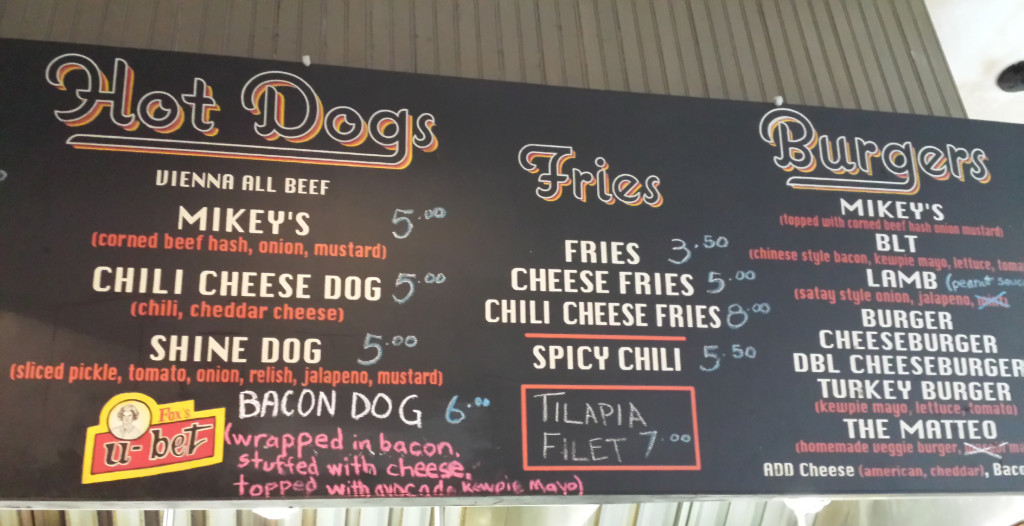 Hot Dogs
VIENNA ALL BEEF
MIKEY'S 5.00
(corned beef hash, onion, mustard)
CHILI CHEESE DOG 5.00
(chili, cheddar cheese)
SHINE DOG 5.00
(sliced pickle, tomato, onion, relish, jalapeno, mustard)
BACON DOG 6.00
(wrapped in bacon,
stuffed with cheese,
topped with avocado kewpie mayo)
Fox's
u-bet
Fries
FRIES 3.50
CHEESE FRIES 5.00
CHILI CHEESE FRIES 8.00
SPICY CHILI 5.50
TILAPIA
FILET 7.00
Burgers
MIKEY'S
(topped with corned beef hash onion mustard)
BLT
(chinese style bacon, kewpie mayo, lettuce, toma
LAMB (peanut sauc
(satay style onion, jalapeno,
BURGER
CHEESEBURGER
DBL CHEESEBURGER
TURKEY BURGER
(kewpie mayo, lettuce, tomato)
THE MATTEO
(homemade veggie burger,
ADD Cheese (american, cheddar), Baco